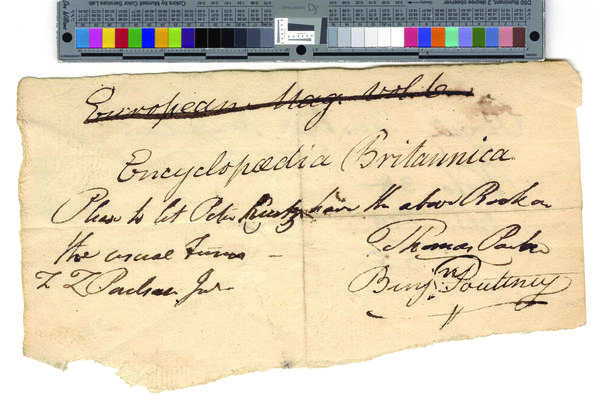 European Mag. Vol. 6
Encyclopædia Britannica
Please to let Peter have the above Book on
the usual terms
Thomas Parke
Z Poulson Junr
Benjn. Poultney